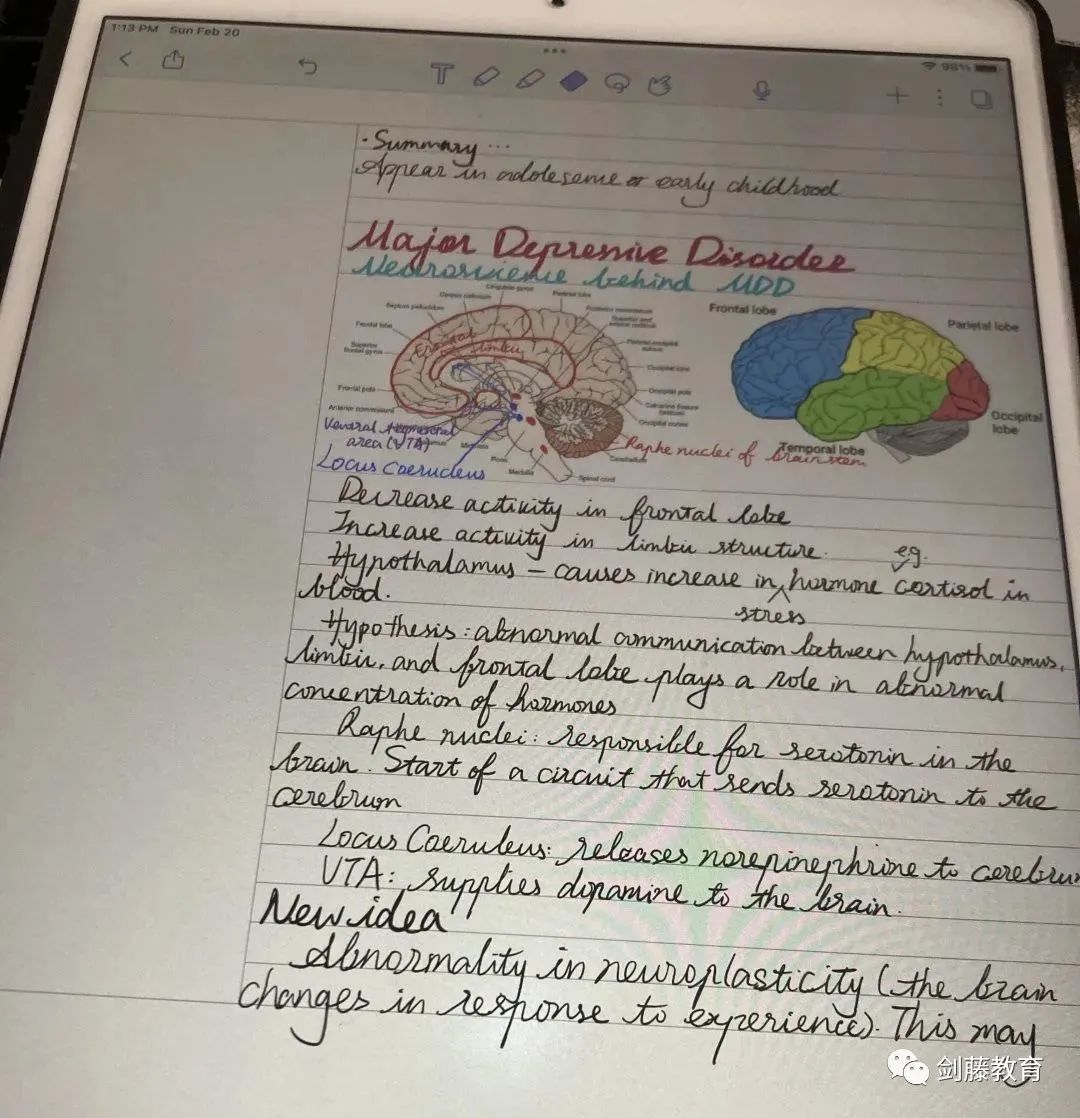 1:13 PM Sun Feb 20
98%
T
· Summary ...
Appear in adolesence or early childhood
Major Depressive Disorder
Neuroscience behind MDD
Cingulate gyrus
Corpus callosum
Parietal lobe
Septum pellucidum
Frontal lobe
Superior
frontal gyrus
Occipital lobe
Frontal pole
Occipital pole
Calcarine fissure
Anterior commissure
Occipital cortex
Frontal
limbic
Ventral tegmental
area (VTA)
Locus Coeruleus
Pons
Medulla
Cerebellum
Spinal cord
Raphe nuclei of brainstem
Frontal lobe
Parietal lobe
Occipital
lobe
Temporal lobe
Decrease activity in frontal lobe
Increase activity in limbic structure.
Hypothalamus – causes increase in stress hormone eg. cortisol in
blood.
Hypothesis: abnormal communication between hypothalamus,
limbic, and frontal lobe plays a role in abnormal
concentration of hormones
Raphe nuclei: responsible for serotonin in the
brain. Start of a circuit that sends serotonin to the
cerebrum
Locus Coeruleus: releases norepinephrine to cerebrum
VTA: supplies dopamine to the brain.
New idea
Abnormality in neuroplasticity (the brain
changes in response to experience). This may
剑藤教育